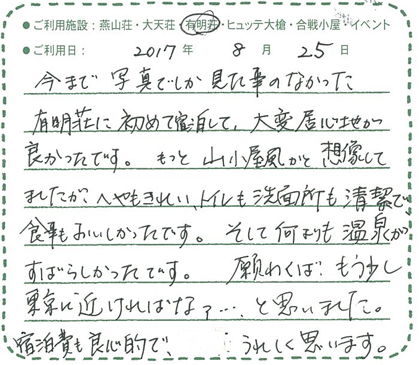 ●ご利用施設：燕山荘・大天荘・有明荘・ヒュッテ大槍・合戦小屋・イベント
●ご利用日： 2017 年 8 月 25 日
今まで 写真でしか 見た事のなかった
有明荘に 初めて宿泊して、大変居心地が
良かったです。 もっと 山小屋風かと 想像して
ましたが、へやもきれい、トイレも洗面所も清潔で、
食事もおいしかったです。 そして何よりも温泉が
すばらしかったです。 願わくば もう少し
東京に近ければなァ…、と思いました。
宿泊費も良心的で、 うれしく思います。